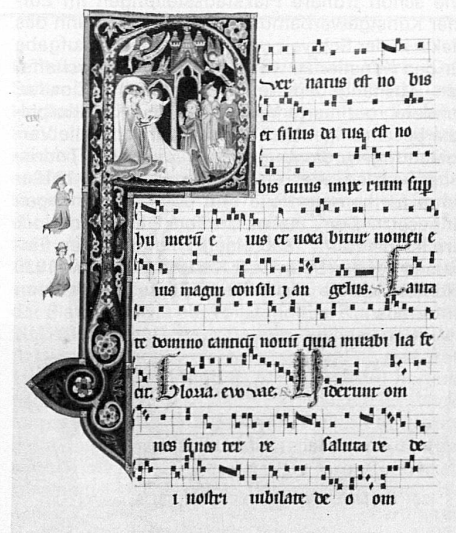 uer natus est no bis
et filius da tus est no
bis cuius impe rium sup
hu merū e ius et voca bitur nomen e
ius magni consili i an gelus. Canta
te domino canticū novū quia mirabi lia fe
cit. Gloria. evovae. Viderunt om
nes fines ter re saluta re de
i nostri iubilate de o om